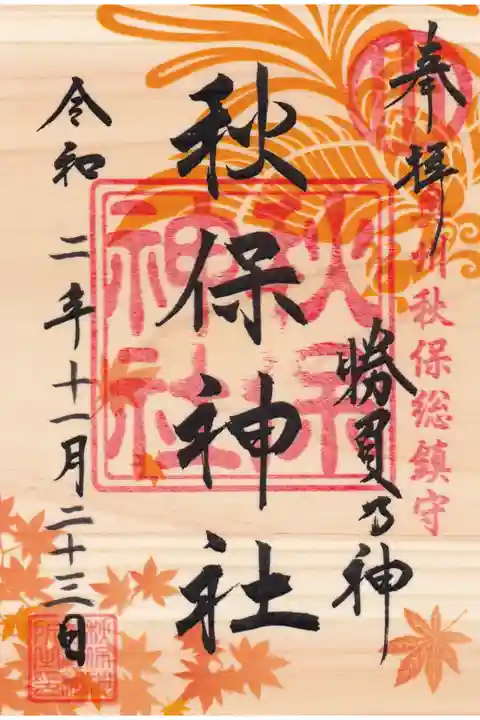 奉拝
州秋保総鎮守
勝負乃神
秋保神社
秋保神社
令和二年十一月二十三日